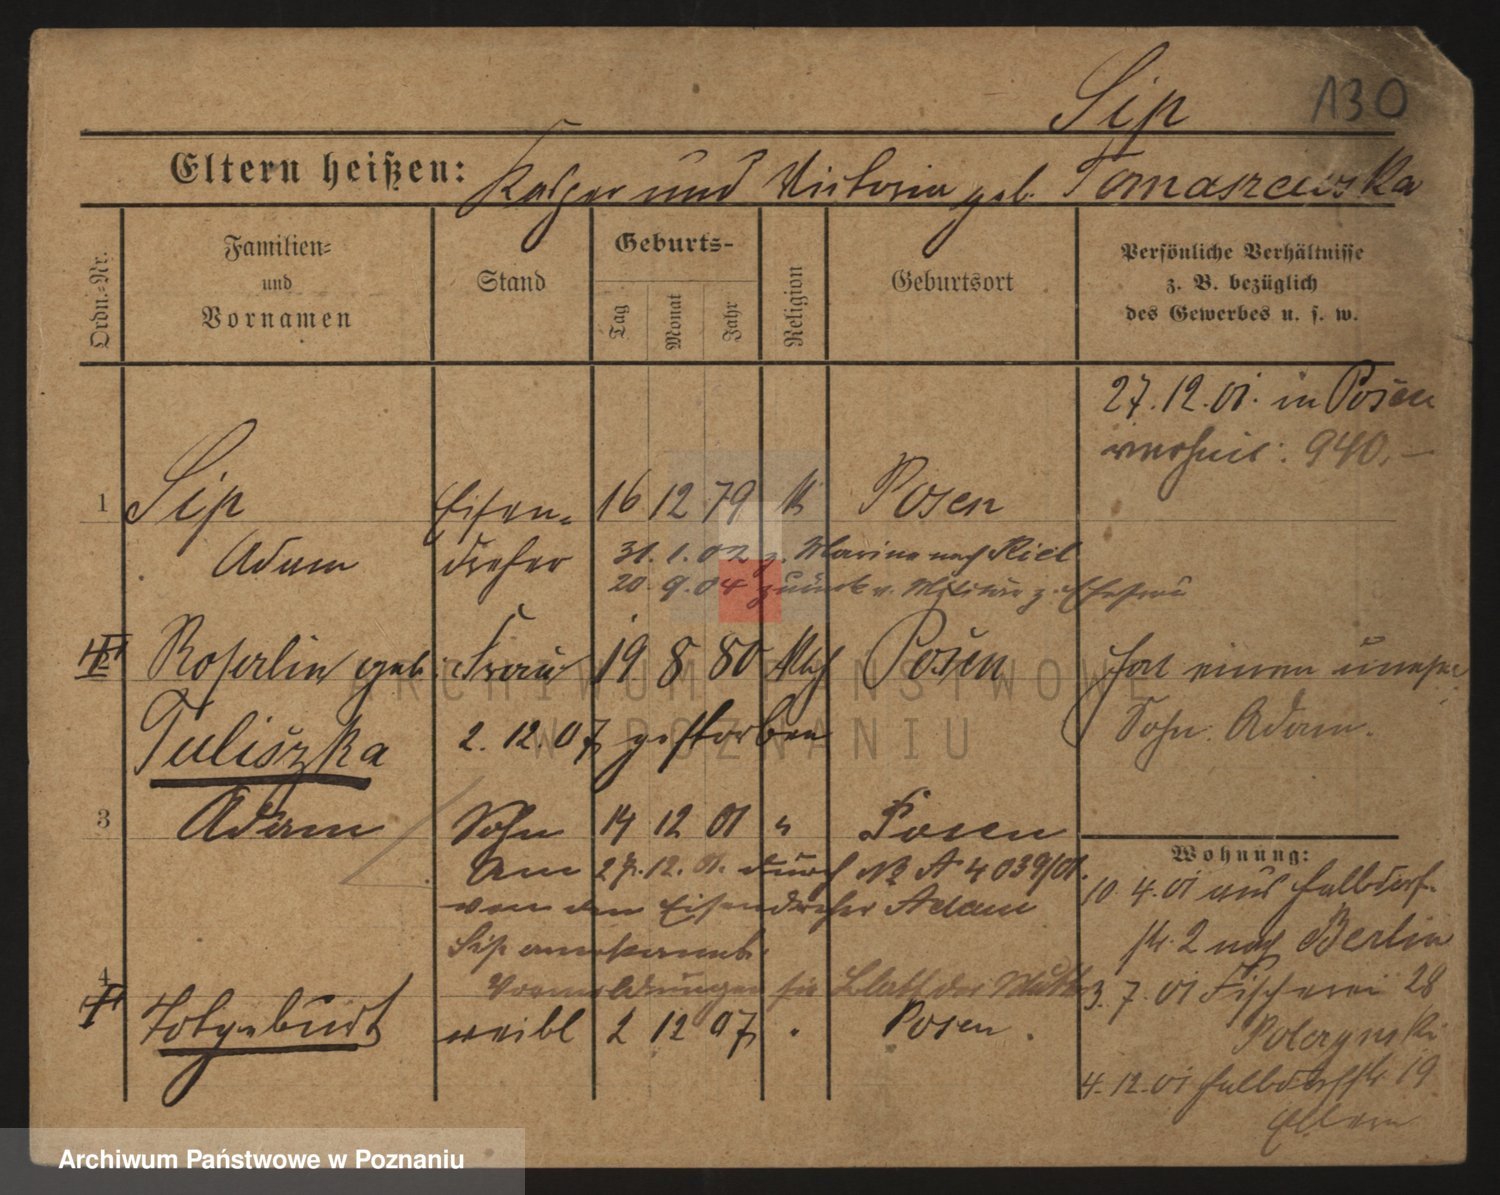 Sip 130
Eltern heißen: Kasper und Victoria geb. Tomaszewska
Ordn.-Nr.
Familien-
und
Vornamen
Stand
Geburts-
Tag
Monat
Jahr
Religion
Geburtsort
Persönliche Verhältnisse
z. B. bezüglich
des Gewerbes u. s. w.
27.12.01. in Posen
verheir: 940.-
1 Sip Eisen- 16 12 79 k Posen
Adam dreher 31.1.02 z. Marine nach Kiel
20.9.04 zurück v. Militär z. Ehefrau
2 Roserlin geb. Frau 19 8 80 kath Posen hat einen unehel
Tuliszka 2.12.07 gestorben Sohn: Adam.
3 Adam Sohn 14 12 01 " Posen
Wohnung:
Am 27.12.01. durch A 4039/01.
von dem Eisendreher Adam
Sip anerkannt.
Vormeldungen sie Blatt der Mutter
10.4.01 aus Halbdorf-
str. 2 nach Berlin
3.7.01 Fischerei 28
4.12.01 Halbdorfstr 19
Eltern
4 Totgeburt weibl 2 12 07 " Posen.
ARCHIWUM PAŃSTWOWE
W POZNANIU
Archiwum Państwowe w Poznaniu